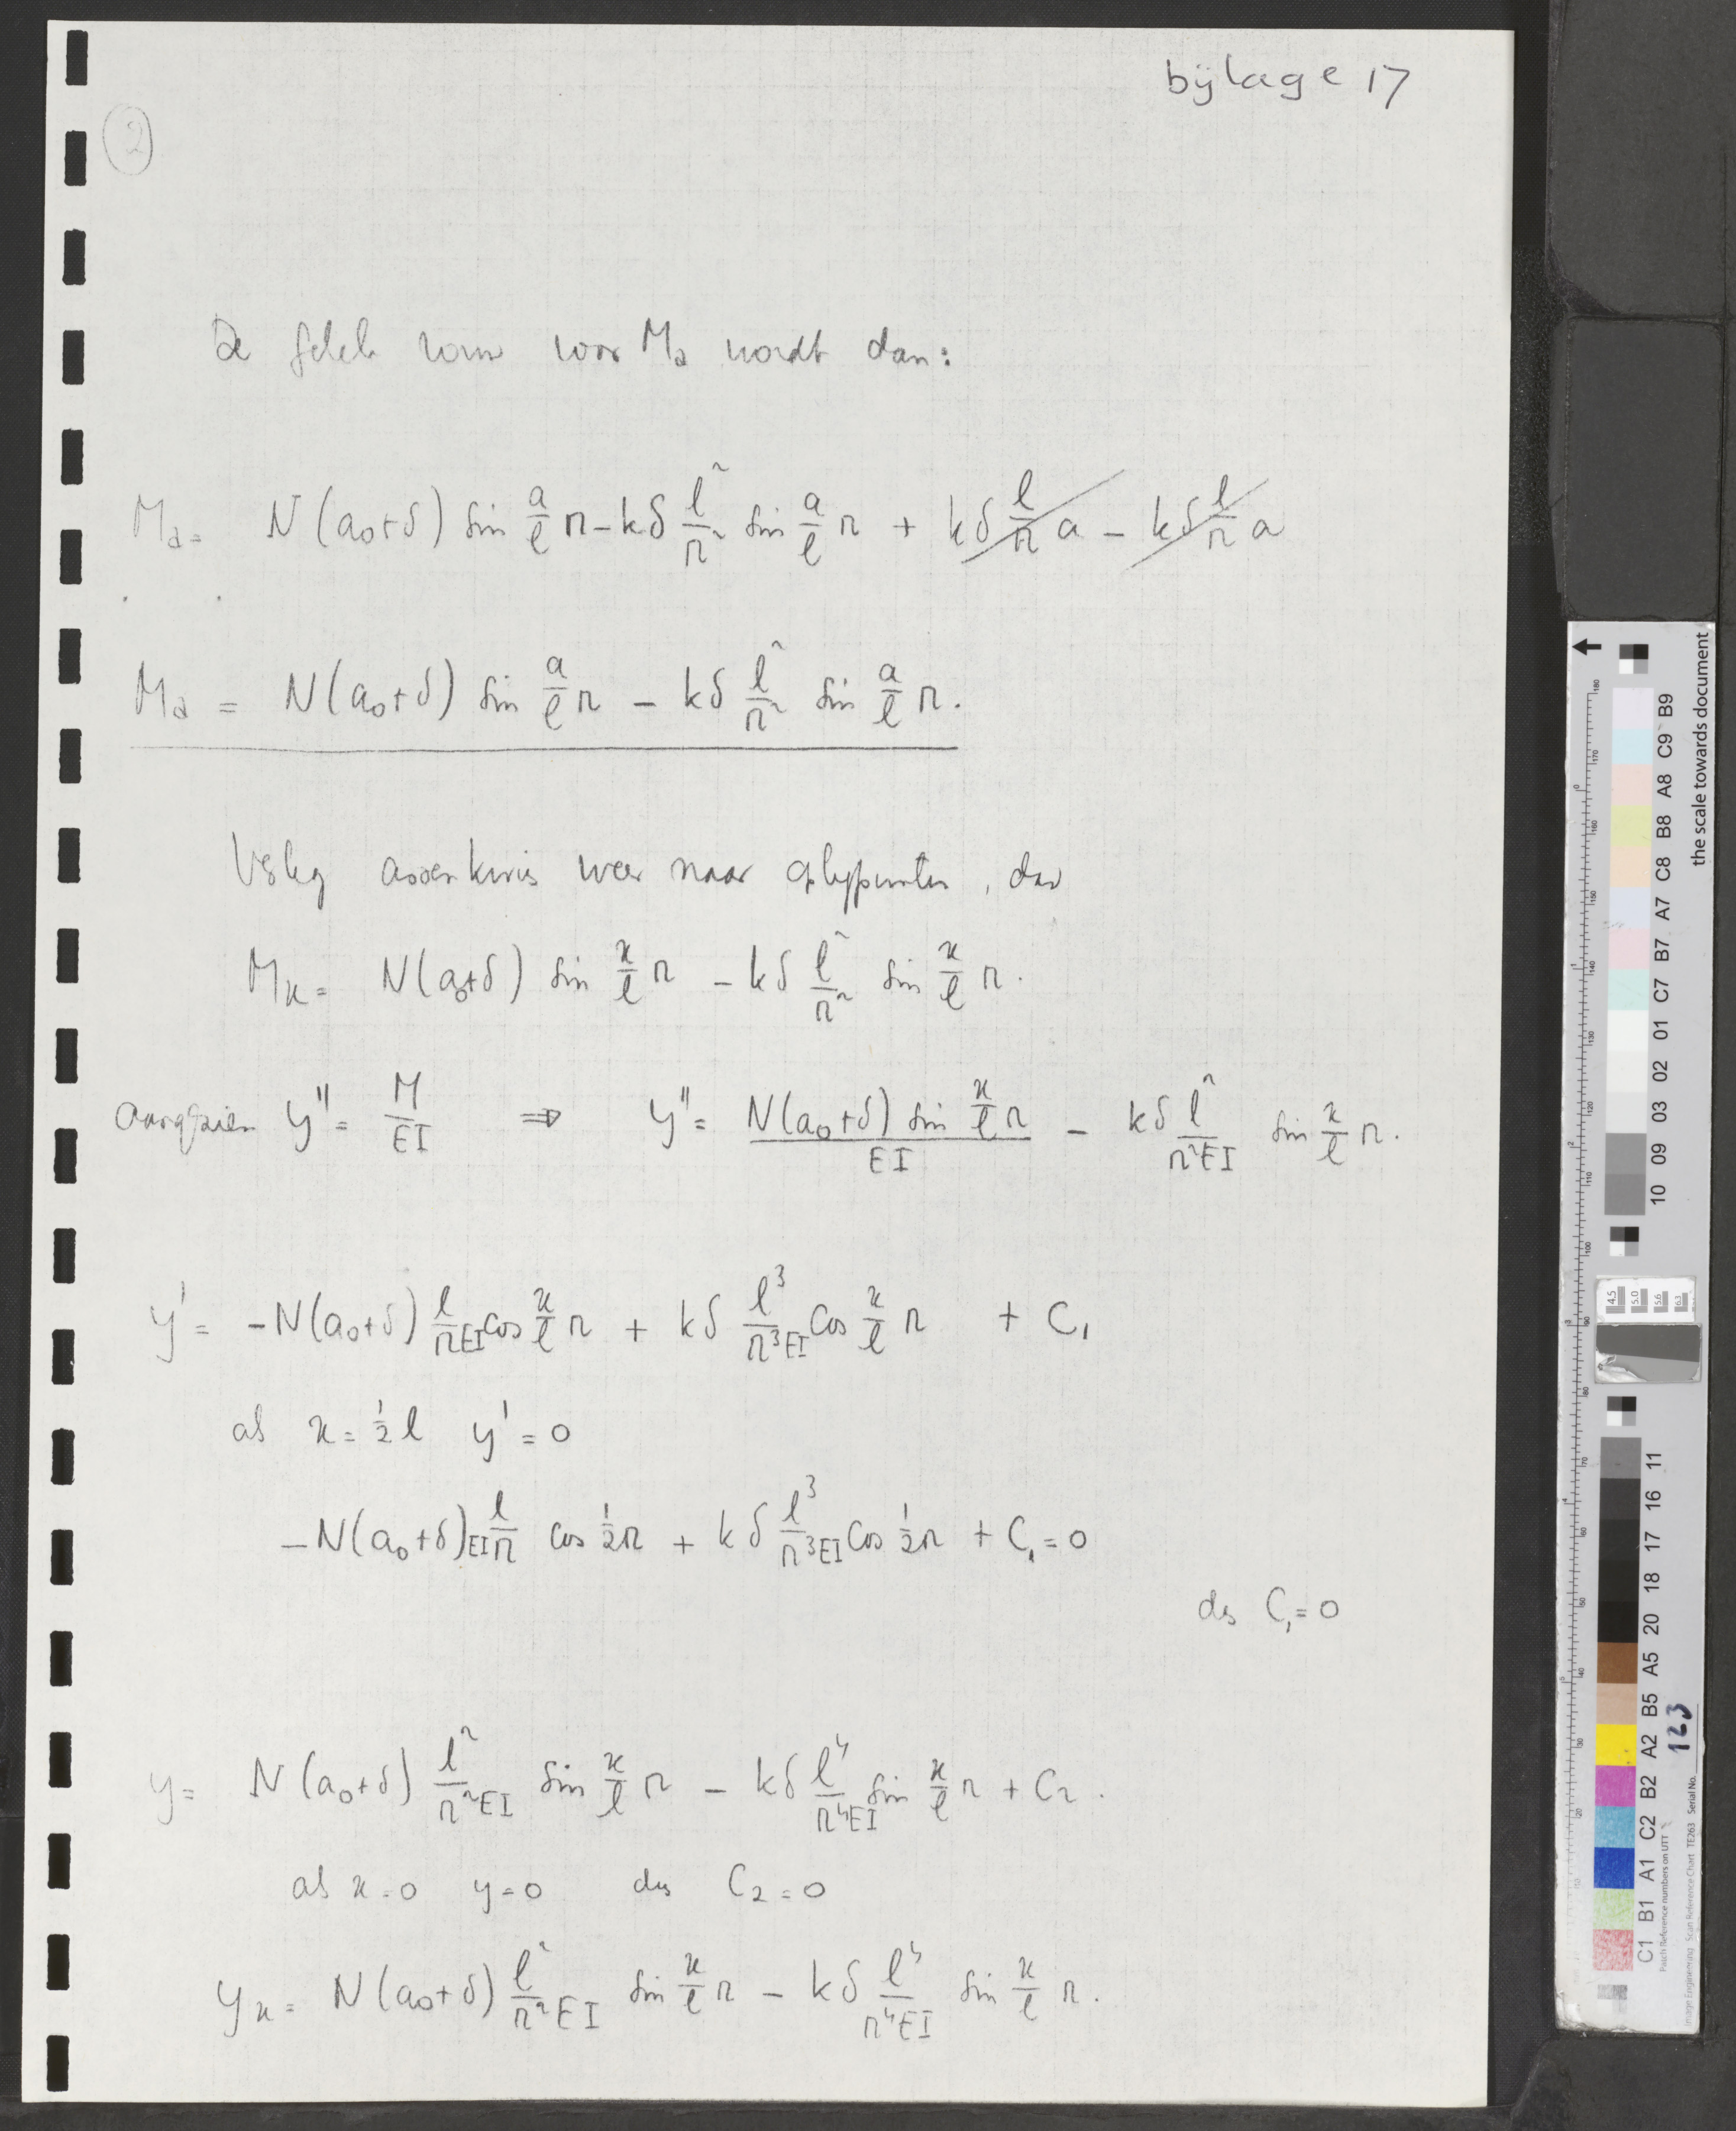 bijlage 17
2
De geheele vorm voor Ma wordt dan:
Ma = N(a₀+δ) sin a/l π − kδ l²/π² sin a/l π + kδ l/π a − kδ l/π a
Ma = N(a₀+δ) sin a/l π − kδ l²/π² sin a/l π.
Verleg assenkruis weer naar oplegpunten, dan
Mx = N(a₀+δ) sin x/l π − kδ l²/π² sin x/l π.
aangezien y'' = M/EI ⇒ y'' = N(a₀+δ) sin x/l π / EI − kδ l²/π²EI sin x/l π.
y' = −N(a₀+δ) l/πEI cos x/l π + kδ l³/π³EI cos x/l π + C₁
als x = ½l y' = 0
−N(a₀+δ) l/EIπ cos ½π + kδ l³/π³EI cos ½π + C₁ = 0
dus C₁ = 0
y = N(a₀+δ) l²/π²EI sin x/l π − kδ l⁴/π⁴EI sin x/l π + C₂.
als x = 0 y = 0 dus C₂ = 0
yx = N(a₀+δ) l²/π²EI sin x/l π − kδ l⁴/π⁴EI sin x/l π.
the scale towards document
10 09 03 02 01 C7 B7 A7 C8 B8 A8 C9 B9
C1 B1 A1 C2 B2 A2 B5 A5 20 18 17 16 11
Image Engineering Scan Reference Chart TE263 Serial No. 123
Patch Reference numbers on UTT